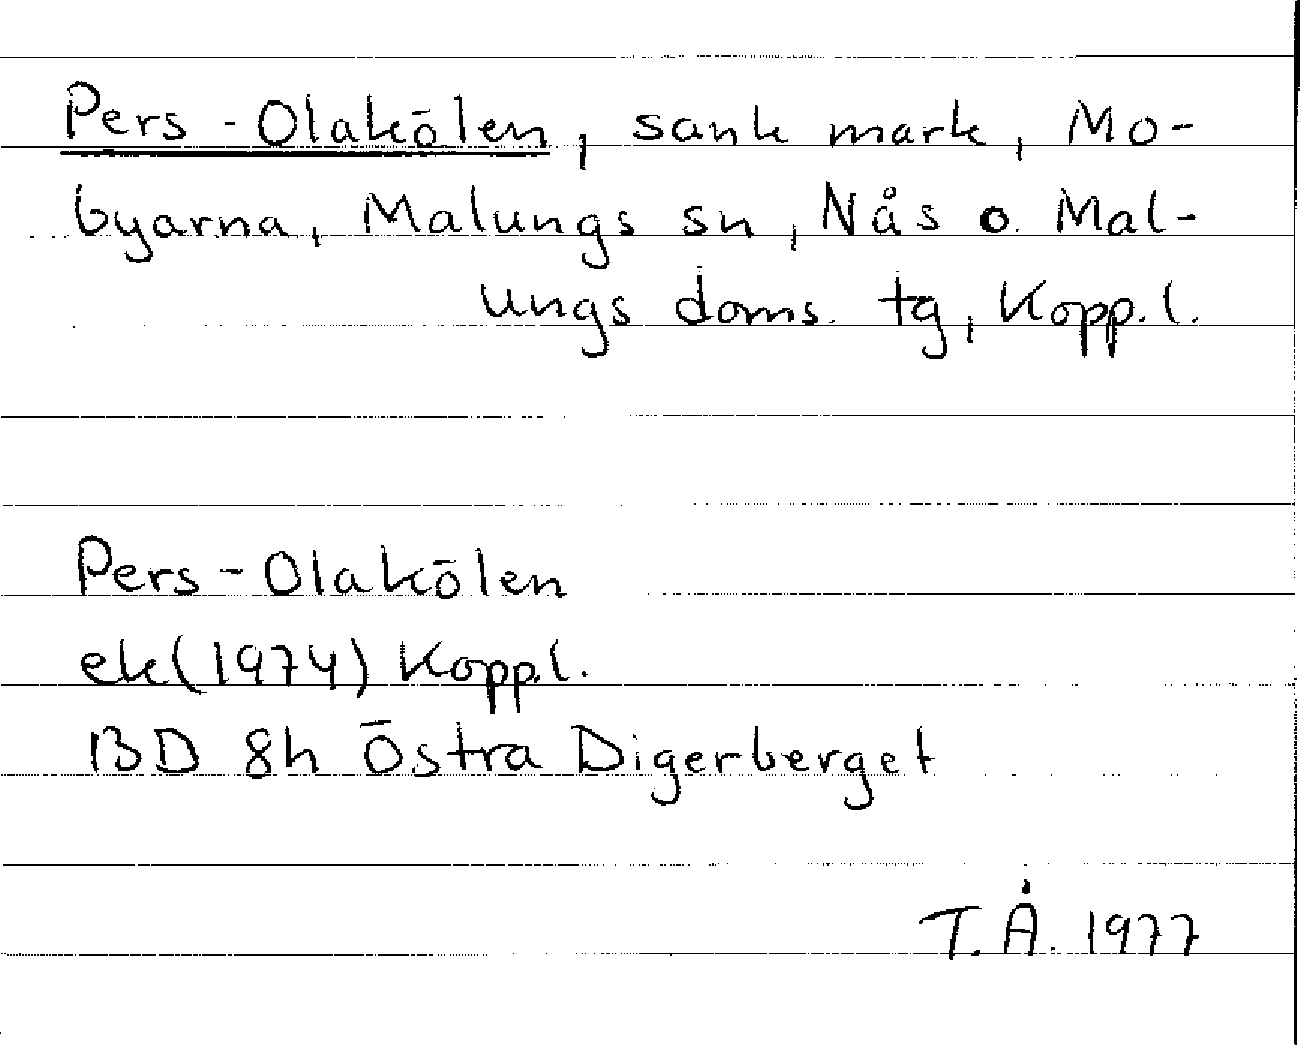 Pers-Olakölen, sank mark, Mo-
byarna, Malungs sn, Nås o. Mal-
ungs doms. tg, Kopp.l.
Pers-Olakölen
ek(1974) Kopp.l.
13D 8h Östra Digerberget
T.Å. 1977